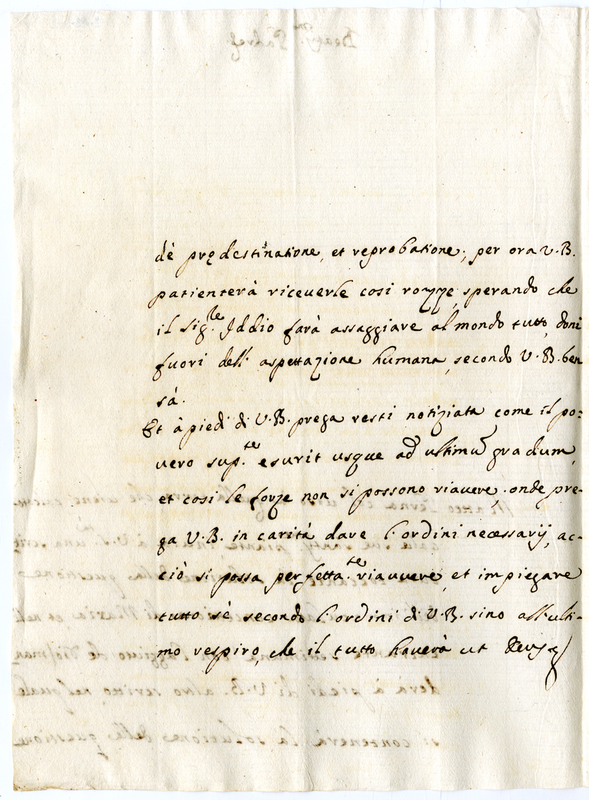 dè prędestinatione, et reprobatione; per ora V.B.
patienterà riceverle cosi rozze, sperando che
il sig.re Iddio farà assaggiare al mondo tutto, doni
fuori dell' aspettazione humana, secondo V.B. ben
sà.
Et à piedi di V.B. prega resti notiziata come il po:
vero sup.te esurit usque ad ultimũ gradum,
et cosi le forze non si possono riavere, onde pre:
ga V.B. in carità dare l'ordini necessarij, ac:
ciò si possa perfetta.te riavvere, et impiegare
tutto sè secondo l'ordini di V.B. sino all'ulti:
mo respiro, che il tutto haverà ut Deus